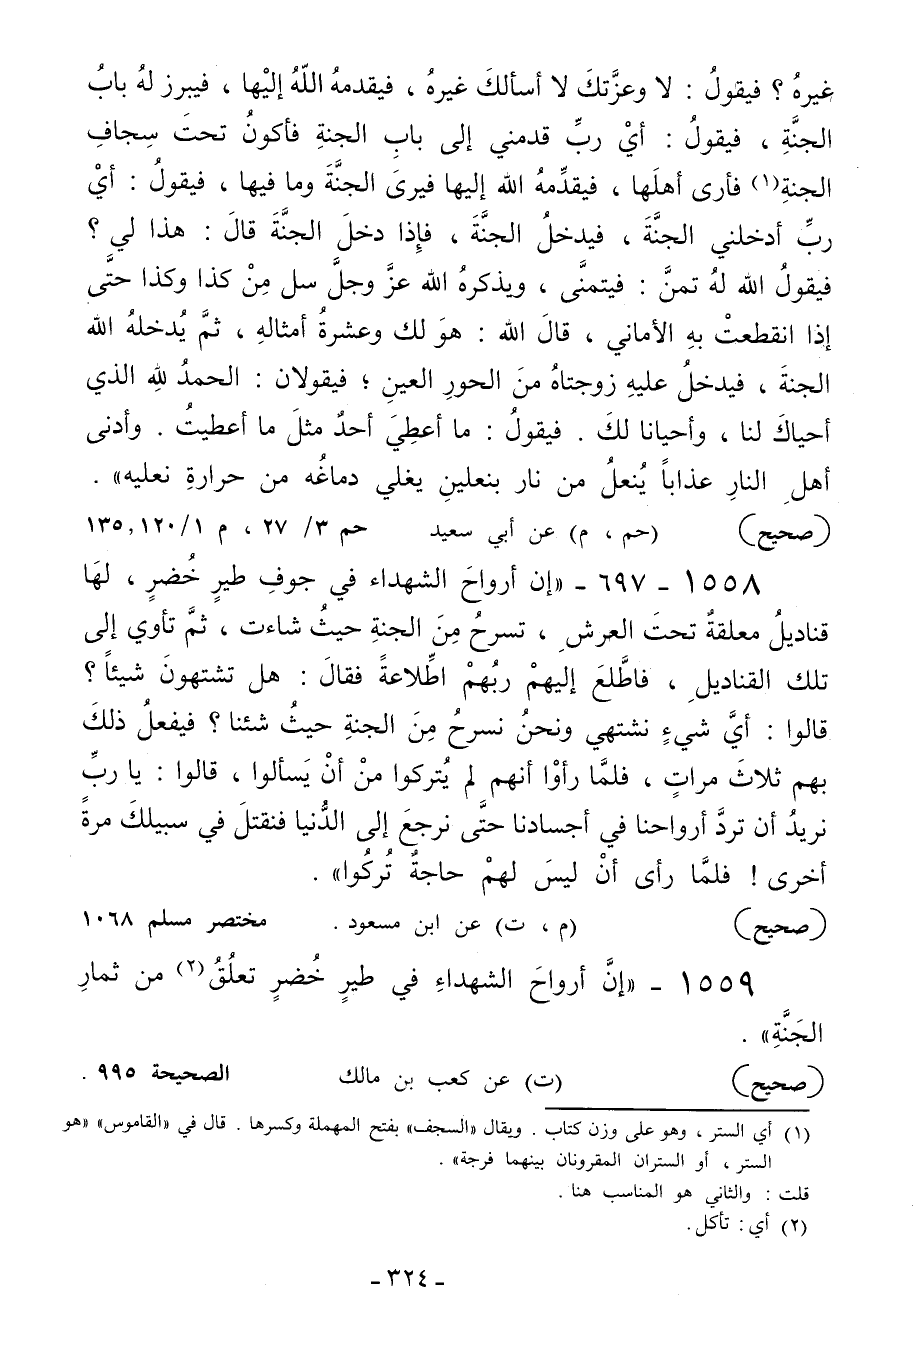 غيرهُ ؟ فيقولُ : لا وعزَّتكَ لا أسألكَ غيرهُ ، فيقدمهُ اللّهُ إليْها ، فيبرز لهُ بابُ
الجنَّةِ ، فيقولُ : أيْ ربِّ قدمني إلى بابِ الجنةِ فأكونُ تحتَ سِجافِ
الجنةِ(١) فأرى أهلَها ، فيقدِّمهُ الله إليها فيرىَ الجنَّةَ وما فيها ، فيقولُ : أيْ
ربِّ أدخلني الجنَّةَ ، فيدخلُ الجنَّةَ ، فإِذا دخلَ الجنَّةَ قالَ : هذا لي ؟
فيقولُ الله لهُ تمنَّ : فيتمنَّى ، ويذكرهُ الله عزَّ وجلَّ سل مِنْ كذا وكذا حتَّى
إذا انقطعتْ بهِ الأماني ، قالَ الله : هوَ لك وعشرةُ أمثالهِ ، ثمَّ يُدخلهُ الله
الجنةَ ، فيدخلُ عليهِ زوجتاهُ منَ الحورِ العينِ ؛ فيقولان : الحمدُ للهِ الذي
أحياكَ لنا ، وأحيانا لكَ . فيقولُ : ما أعطِيَ أحدٌ مثلَ ما أعطيتُ . وأدنى
أهلِ النارِ عذاباً يُنعلُ من نار بنعلينِ يغلي دماغُه من حرارةِ نعليه» .
(صحيح) (حم ، م) عن أبي سعيد حم ٣/ ٢٧ ، م ١/ ١٢٠, ١٣٥
١٥٥٨ - ٦٩٧ - «إن أرواحَ الشهداء في جوفِ طيرٍ خُضرٍ ، لهَا
قناديلُ معلقةٌ تحتَ العرشِ ، تسرحُ مِنَ الجنةِ حيثُ شاءت ، ثمَّ تأوي إلى
تلك القناديلِ ، فاطَّلعَ إليهمْ ربُهمْ اطِّلاعةً فقالَ : هل تشتهونَ شيئاً ؟
قالوا : أيَّ شيءٍ نشتهي ونحنُ نسرحُ مِنَ الجنةِ حيثُ شئنا ؟ فيفعلُ ذلكَ
بهم ثلاثَ مراتٍ ، فلمَّا رأوْا أنهم لم يُتركوا منْ أنْ يَسألوا ، قالوا : يا ربِّ
نريدُ أن تردَّ أرواحنا في أجسادنا حتَّى نرجعَ إلى الدُّنيا فنقتلَ في سبيلكَ مرةً
أخرى ! فلمَّا رأى أنْ ليسَ لهمْ حاجةٌ تُركُوا» .
(صحيح) (م ، ت) عن ابن مسعود . مختصر مسلم ١٠٦٨
١٥٥٩ - «إنَّ أرواحَ الشهداءِ في طيرٍ خُضرٍ تعلُقُ(٢) من ثمارِ
الجَنَّةِ» .
(صحيح) (ت) عن كعب بن مالك الصحيحة ٩٩٥ .
(١) أي الستر ، وهو على وزن كتاب . ويقال «السجف» بفتح المهملة وكسرها . قال في «القاموس» «هو
الستر ، أو الستران المقرونان بينهما فرجة» .
قلت : والثاني هو المناسب هنا .
(٢) أي : تأكل.
- ٣٢٤ -